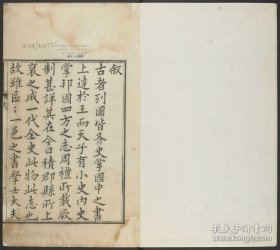 敘
古者列國皆各史掌國中之書
上達於王而天子有小史内史
掌邦國四方之志周禮所載厥
制甚詳其在今日積郡縣所上
裒之成一代全史此物此志也
故雖區區一邑之書學士大夫
孔夫子旧书网